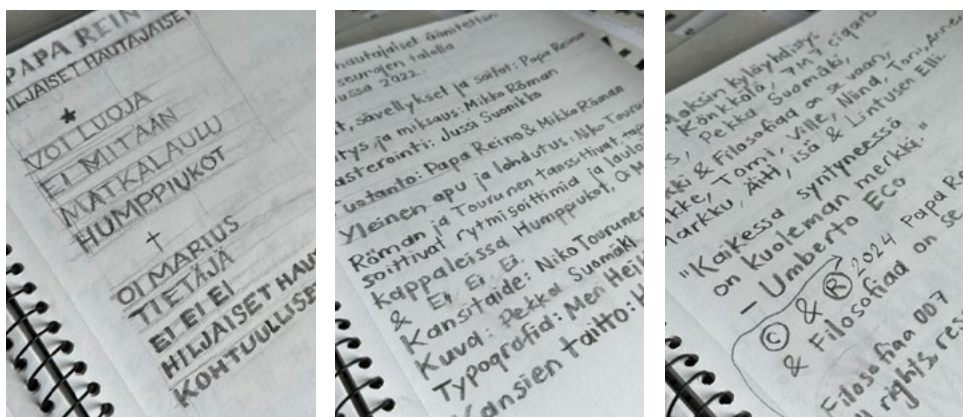 PAPA REIN
HILJAISET HAUTAJAISET
VOI LUOJA
EI MITÄÄN
MATKALAULU
HUMPPIUKOT
OI MARIUS
TIETÄJÄ
EI EI EI
HILJAISET HAU
KOHTUULLISET
hautajaiset äänitettiin
seurojen talolla
ussa 2022.
t, sävellykset ja soitot: Papa Reino
itys ja miksaus: Mikko Röman
asterointi: Jussi Suonikko
uotanto: Papa Reino & Mikko Röman
Yleinen apu ja lohdutus: Niko Tourunen
Röman ja Tourunen tanssittivat, tap
soittivat rytmisoittimia ja lauloi
kappaleissa Humppiukot, Oi M
& Ei, Ei, Ei
Kansitaide: Niko Tourunen
Kuva: Pekka Suomäki
Typografia: Meri Heik
Kansien taitto:
Maksin kyläyhdistys
Könkkölä, 7 M 7 cigar
Pekka Suomäki,
ki & Filosofiaa on se vaan,
kke, Tomi, Ville, Nina, Toni, Anne
Markku, Äiti, isä & Lintusen Elli
"Kaikessa syntyneessä
on kuoleman merkki."
- Umberto Eco
© & ® 2024 Papa Re
& Filosofiaa on se
Filosofiaa 007
ll rights res